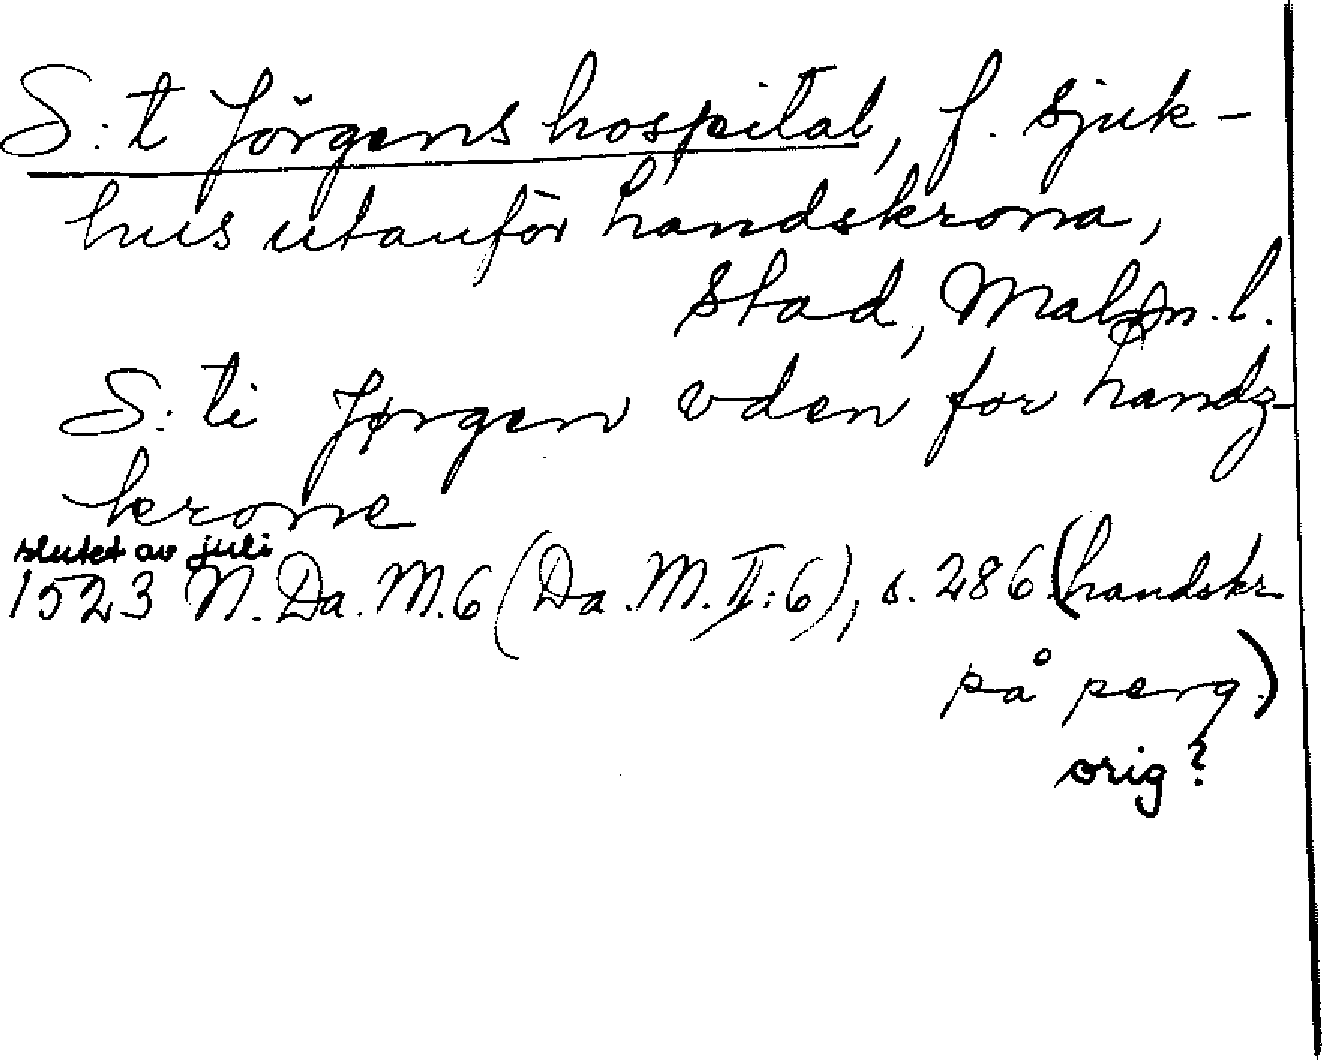 S:t Jörgens hospital, f. sjuk-
hus utanför Landskrona,
stad, Malm. l.
S:ti Jørgen vden for Landz-
krone
slutet av juli
1523 N. Da. M. 6 (Da. M. II:6), s. 286 (handskr
på perg.)
orig?